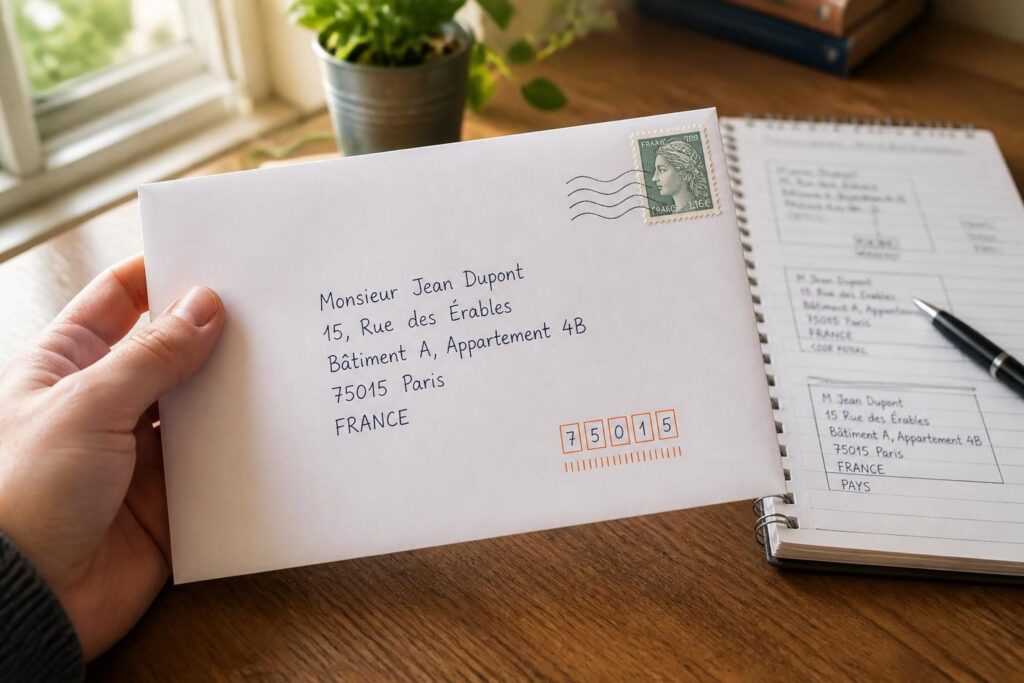 Monsieur Jean Dupont
15, Rue des Érables
Bâtiment A, Appartement 4B
75015 Paris
FRANCE
75015
1,16€
M. Jean Dupont
15 Rue des Érables
75015 Paris
FRANCE
CODE POSTAL
M Jean Dupont
15 Rue des Érables
Bâtiment A, Appartement 4B
75015 Paris
FRANCE
PAYS